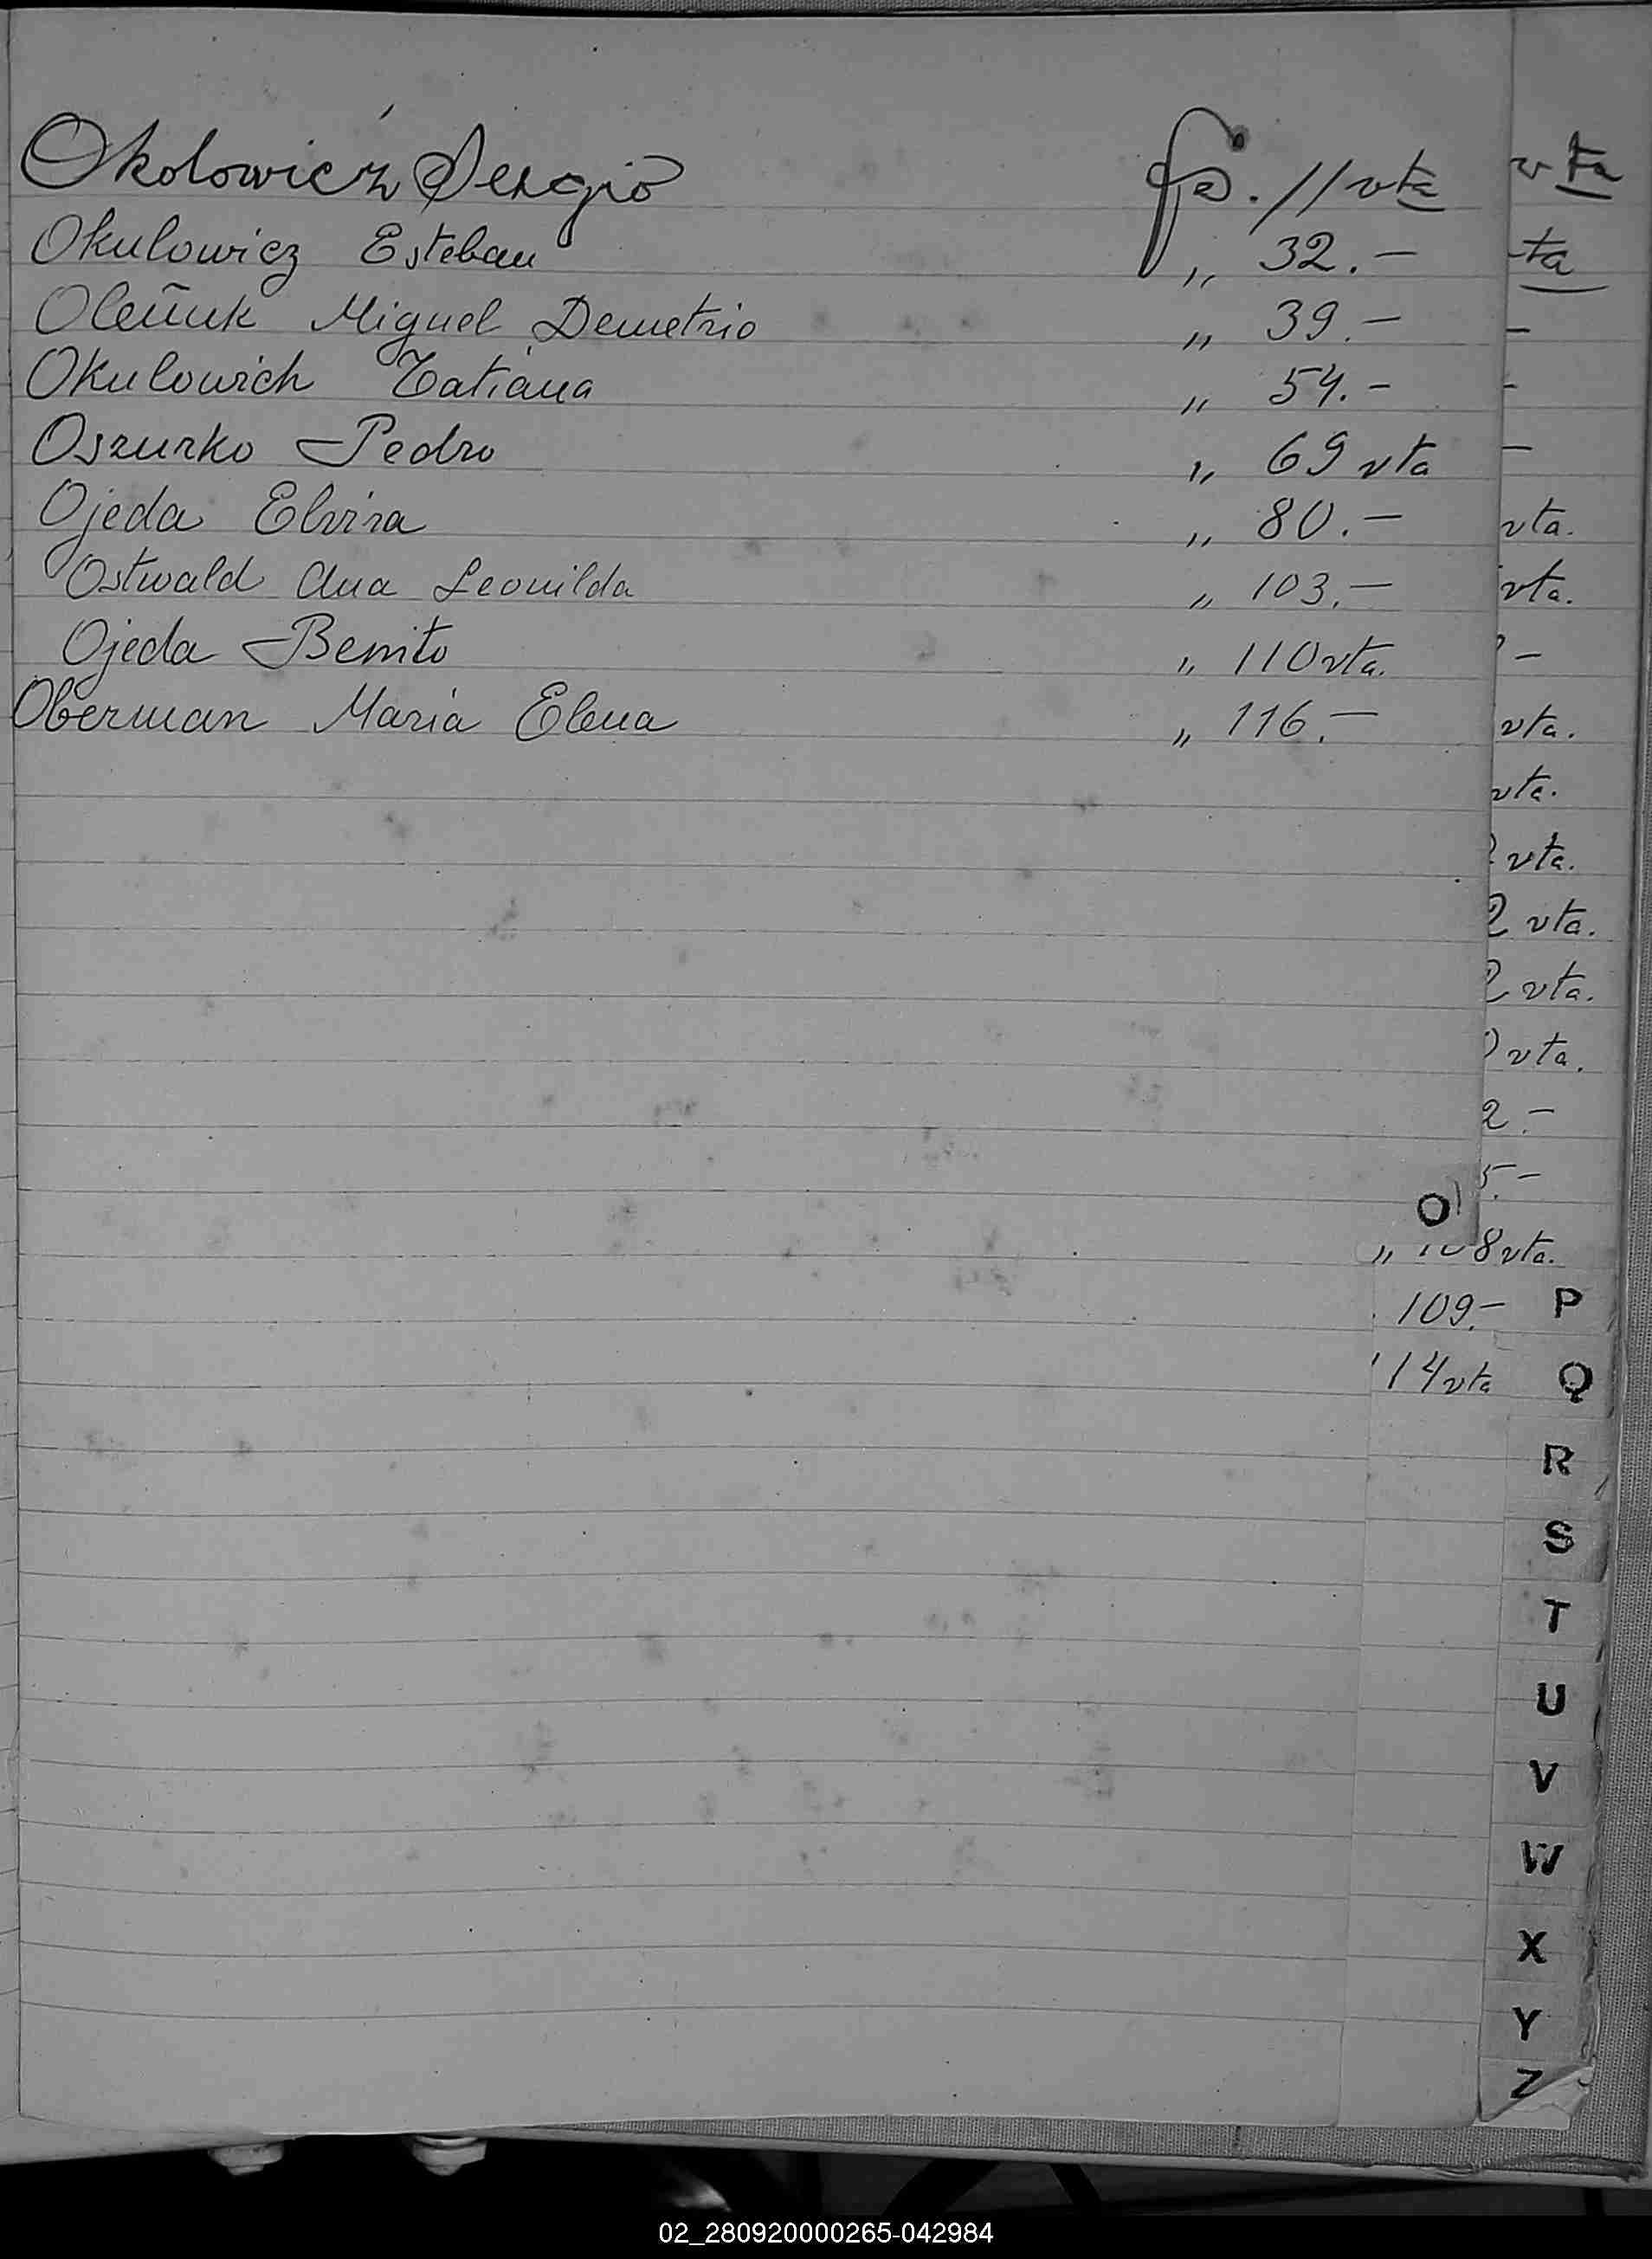 Okolowicz Sergio fs. 11 vta
Okulowicz Esteban " 32.-
Oleñuk Miguel Demetrio " 39.-
Okulowich Tatiana " 54.-
Oszurko Pedro " 69 vta
Ojeda Elvira " 80.-
Ostwald Ana Leonilda " 103.-
Ojeda Benito " 110 vta.
Oberman María Elena " 116.-
vta
ta
-
-
-
vta.
vta.
-
vta.
vta.
vta.
2 vta.
2 vta.
vta.
2.-
5.-
O
" 108 vta.
109.- P
114 vta Q
R
S
T
U
V
W
X
Y
Z
02_280920000265-042984